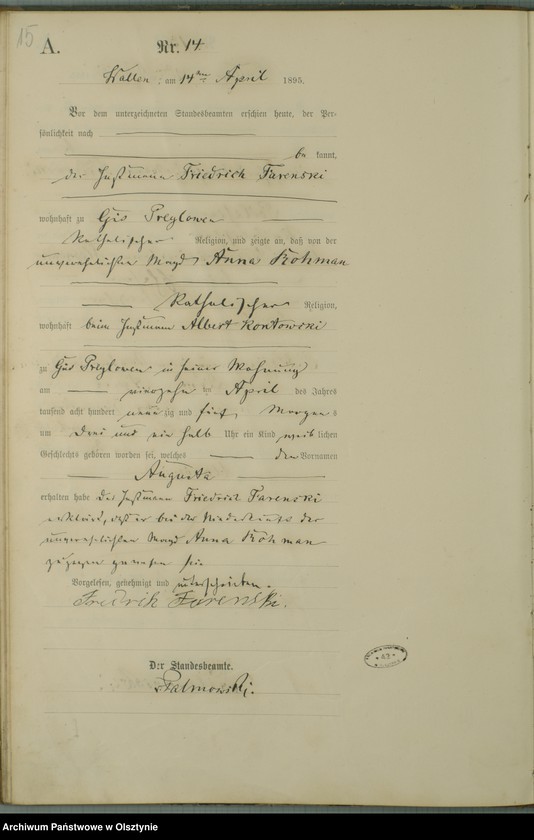 15
A.
Nr. 14.
Wallen, am 14ten April 1895.
Vor dem unterzeichneten Standesbeamten erschien heute, der Per-
sönlichkeit nach
be kannt,
der Instmann Friedrich Farenski
wohnhaft zu Gut Preylowen
Katholischer Religion, und zeigte an, daß von der
unverehelichten Magd Anna Kohman
Katholischer Religion,
wohnhaft beim Instmann Albert Kontowski
zu Gut Preylowen in seiner Wohnung
am vierzehn ten April des Jahres
tausend acht hundert neun zig und fünf, Morgens
um Drei und ein halb Uhr ein Kind weib lichen
Geschlechts geboren worden sei, welches den Vornamen
Augusta
erhalten habe Der Instmann Friedrich Farenski
erklärt, daß er bei der Niederkunft der
unverehelichten Magd Anna Kohman
zugegen gewesen sei
Vorgelesen, genehmigt und unterschrieben.
Fredrik Farenski.
Der Standesbeamte.
Palmowski.
Archiwum Państwowe w Olsztynie